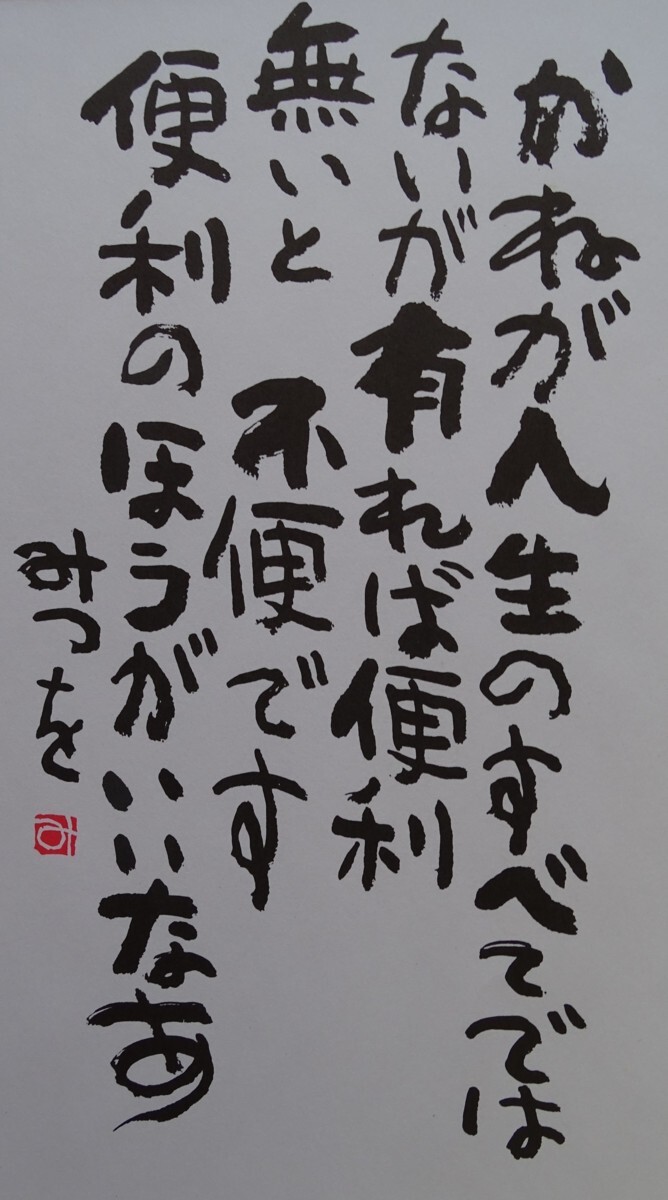 かねが人生のすべてでは
ないが有れば便利
無いと 不便です
便利のほうがいいなあ
みつを
み